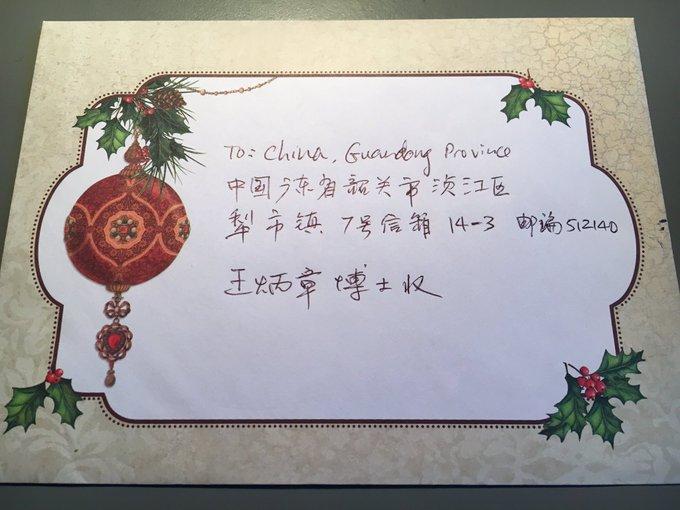 To: China, Guandong Province
中国广东省韶关市浈江区
犁市镇 7号信箱 14-3 邮编 512140
王炳章博士收